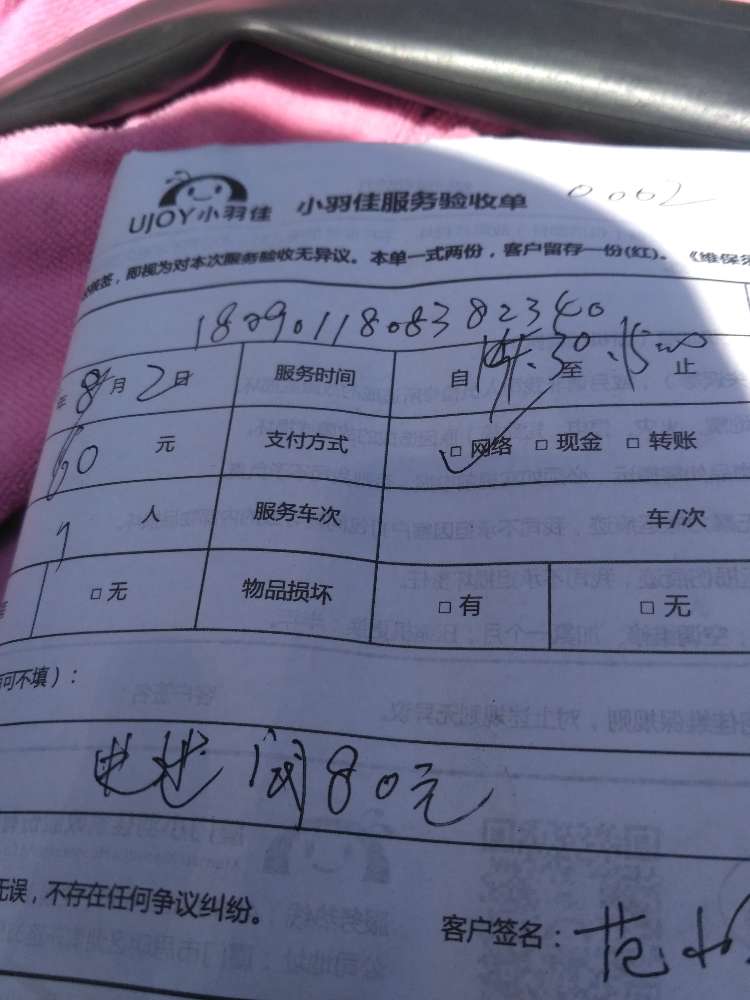 UJOY小羽佳 小羽佳服务验收单 0062
签，即视为对本次服务验收无异议。本单一式两份，客户留存一份(红)。《维保须
1809011808382340
年 8月2日 服务时间 自14:30至15:00止
60元 支付方式 □网络 □现金 □转账
1人 服务车次 车/次
□无 物品损坏 □有 □无
可不填）：
闭80元
无误，不存在任何争议纠纷。
客户签名：范